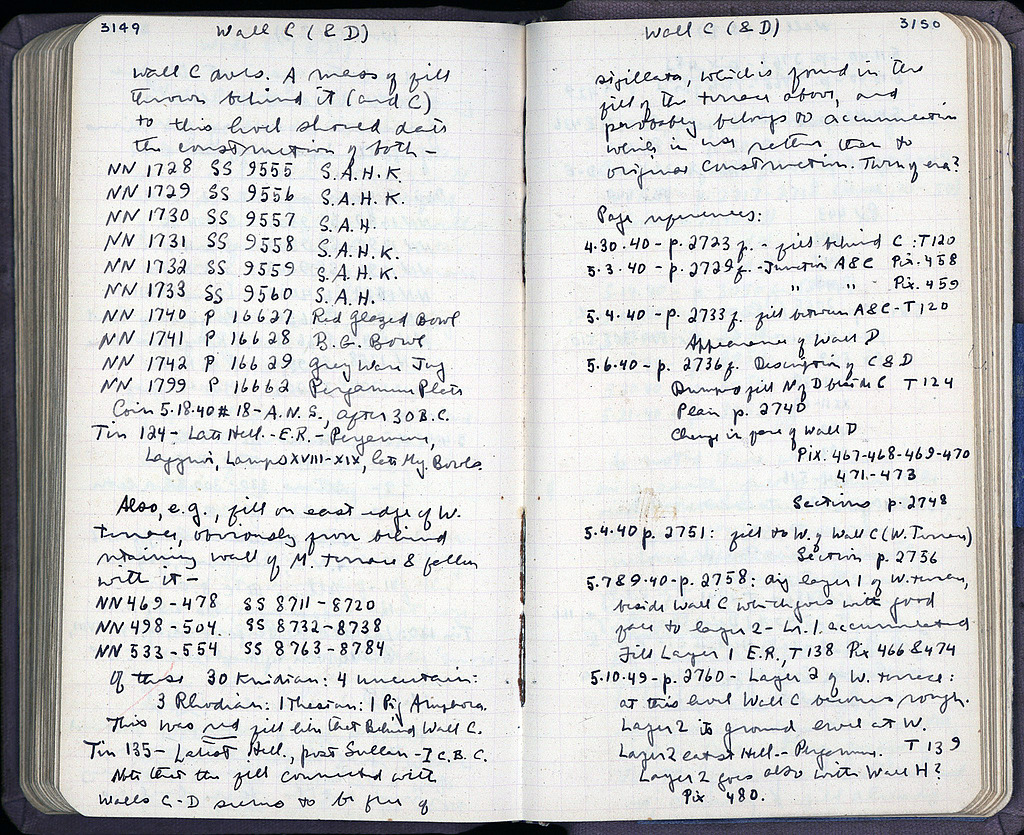 3149 Wall C (& D)
Wall C does. A mass of fill
thrown behind it (and C)
to this level should date
the construction of both -
NN 1728 SS 9555 S.A.H.K.
NN 1729 SS 9556 S.A.H.K.
NN 1730 SS 9557 S.A.H.
NN 1731 SS 9558 S.A.H.K.
NN 1732 SS 9559 S.A.H.K.
NN 1733 SS 9560 S.A.H.
NN 1740 P 16627 Red Glazed Bowl
NN 1741 P 16628 B.G. Bowl
NN 1742 P 16629 Grey Ware Jug
NN 1799 P 16662 Pergamene Plate
Coin 5.18.40 #18 - A.N.S., after 30 B.C.
Tin 124 - Late Hell. - E.R. - Pergamene,
Lagynoi, Lamps XVIII-XIX, late Meg. Bowls.
Also, e.g., fill on east edge of W.
terrace, obviously from behind
retaining wall of M. terrace & fallen
with it -
NN 469-478 SS 8711-8720
NN 498-504. SS 8732-8738
NN 533-554 SS 8763-8784
Of these 30 Knidian: 4 uncertain:
3 Rhodian: 1 Thasian: 1 Pig Amphora.
This was red fill like that Behind Wall C.
Tin 135 - Latest Hell, post Sullan - I C. B.C.
Note that the fill connected with
Walls C-D seems to be free of
Wall C (& D) 3150
sigillata, which is found in the
fill of the terrace above, and
probably belongs to accumulation
which is us rather than to
original construction. Turn of era?
Page references:
4.30.40 - p. 2723 f. - fill behind C : T 120
5.3.40 - p. 2729 f. - Junction A & C Pix. 458
" " Pix. 459
5.4.40 - p. 2733 f. fill between A & C - T 120
Appearance of Wall D
5.6.40 - p. 2736 f. Description of C & D
Dumped fill N of D behind C T 124
Plan p. 2740
Change in face of Wall D
Pix. 467-468-469-470
471-473
Sections p. 2748
5.4.40 p. 2751: fill to W. of Wall C (W. Terrace)
Section p. 2756
5.7 8 9.40 - p. 2758: dig layer 1 of W. terrace,
beside Wall C which goes with good
face to layer 2 - Lr. 1. accumulated
Fill Layer 1 E.R., T 138 Pix 466 & 474
5.10.49 - p. 2760 - Layer 2 of W. terrace:
at this level Wall C becomes rough.
Layer 2 is ground level at W.
Layer 2 latest Hell - Pergamene. T 139
Layer 2 goes also with Wall H?
Pix 480.